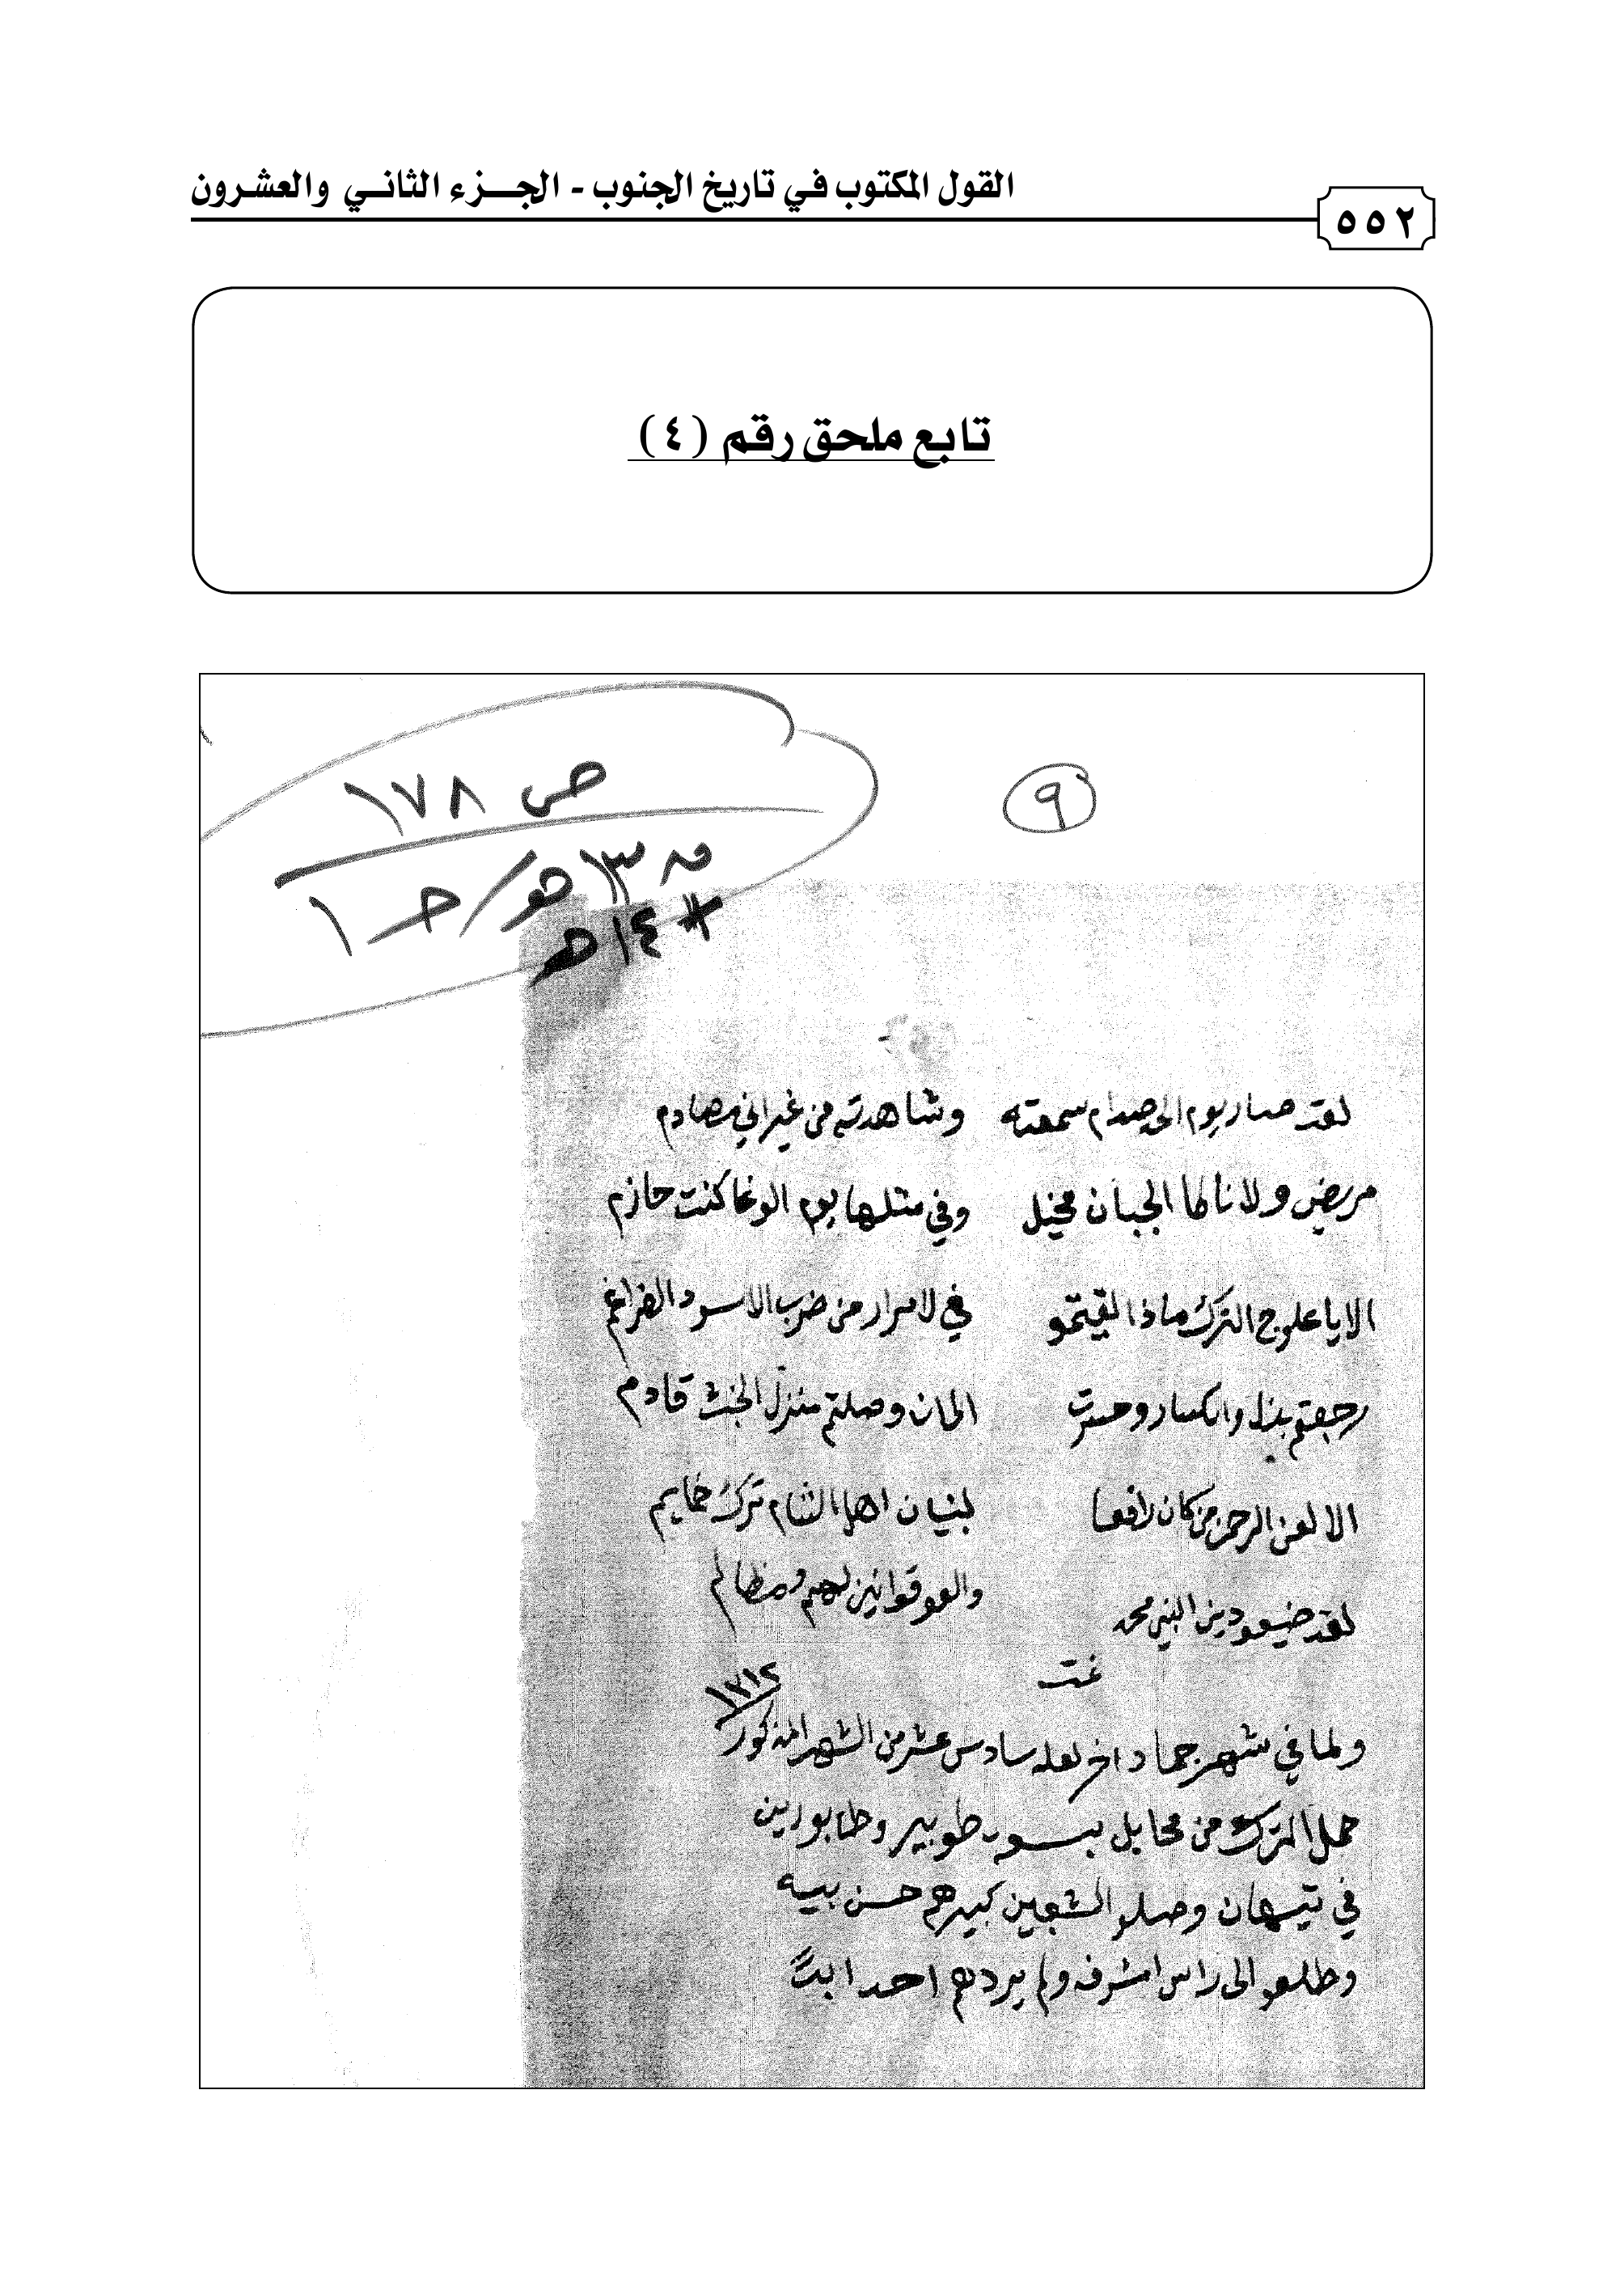 القول المكتوب في تاريخ الجنوب - الجزء الثاني والعشرون
٥٥٢
تابع ملحق رقم (٤)
ص ١٧٨
٩
ق ١٣هـ / جـ ١
* ١٤هـ
لقد صار يوم الحصدام سمعته وشاهدته من غير اني مصادم
مريض ولا نالها الجبان مخيل وفي مثلها يوم الوغا كنت حازم
الا يا علوج الترك ماذا لقيتمو في لامرار من ضرب الاسود الضراغم
رجعتم بذل وانكسار وحسرت الى ان وصلتم منزل الخبث قادم
الا لعن الرحمن من كان رافعا لبنيان اهل الشام ترك خمايم
لقد ضيعو دين النبي محمد والفو قوانين لهم ومظالم
تمت
ولما في شهر جماد اخر لعله سادس عشر من الشهر المذكور ١٣١٢
حمل الترك من محايل طوبير وطابورين
في تيهان وصلو الشعبين كبيرهم حسن بيه
وطلعو الى راس امشرف ولم يردهم احد ابتً